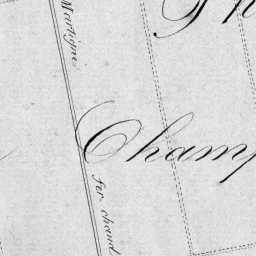 Martigne
Champ
fer chaud